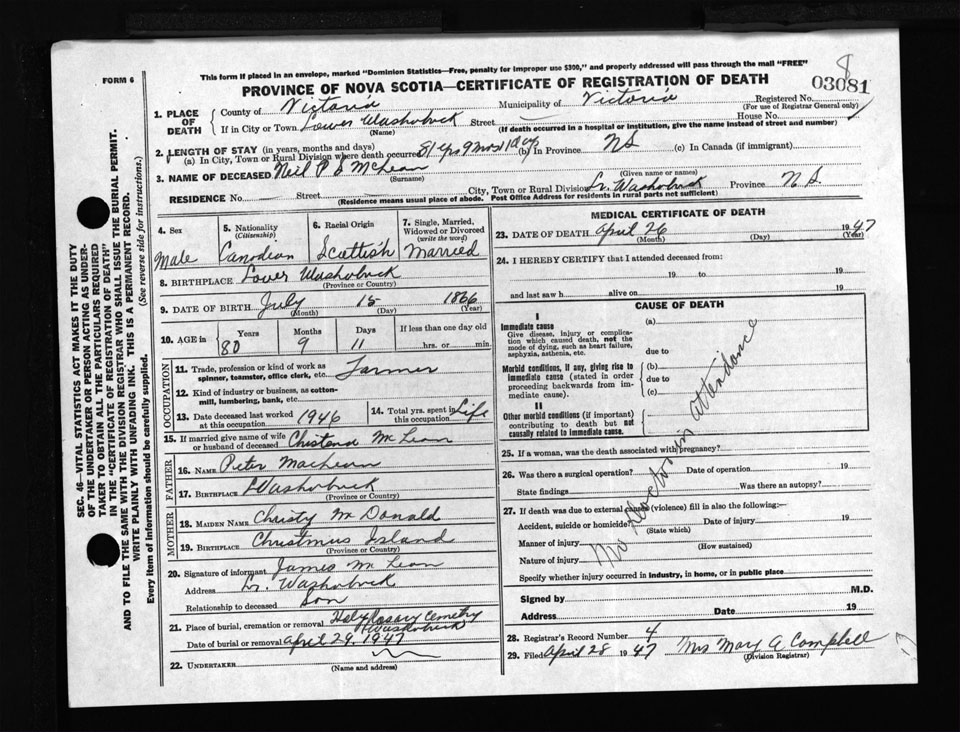 8
This form if placed in an envelope, marked "Dominion Statistics—Free, penalty for improper use $300," and properly addressed will pass through the mail "FREE"
FORM 6
PROVINCE OF NOVA SCOTIA—CERTIFICATE OF REGISTRATION OF DEATH
03081
1. PLACE OF DEATH
County of Victoria Municipality of Victoria Registered No.
(For use of Registrar General only)
If in City or Town Lower Washabuck Street House No.
(Name) (If death occurred in a hospital or institution, give the name instead of street and number)
2. LENGTH OF STAY (in years, months and days)
(a) In City, Town or Rural Division where death occurred 81 yrs 9 mos 11 days (b) In Province NS (c) In Canada (if immigrant)
3. NAME OF DECEASED Neil P S McLean
(Surname) (Given name or names)
RESIDENCE No. Street City, Town or Rural Division Lr. Washabuck Province N.S.
(Residence means usual place of abode. Post Office Address for residents in rural parts not sufficient)
4. Sex
Male
5. Nationality
(Citizenship)
Canadian
6. Racial Origin
Scottish
7. Single, Married, Widowed or Divorced
(write the word)
Married
8. BIRTHPLACE Lower Washabuck
(Province or Country)
9. DATE OF BIRTH July 15 1866
(Month) (Day) (Year)
10. AGE in Years Months Days If less than one day old
80 9 11 hrs. or min.
OCCUPATION
11. Trade, profession or kind of work as spinner, teamster, office clerk, etc. Farmer
12. Kind of industry or business, as cotton-mill, lumbering, bank, etc.
13. Date deceased last worked at this occupation 1946
14. Total yrs. spent in this occupation Life
15. If married give name of wife or husband of deceased Chistena McLean
FATHER
16. NAME Peter MacLean
17. BIRTHPLACE Washabuck
(Province or Country)
MOTHER
18. MAIDEN NAME Christy McDonald
19. BIRTHPLACE Christmus Island
(Province or Country)
20. Signature of informant James McLean
Address Lr. Washabuck
Relationship to deceased Son
21. Place of burial, cremation or removal Holy Rosary Cemetry
Washabuck
Date of burial or removal April 29, 1947
22. UNDERTAKER
(Name and address)
MEDICAL CERTIFICATE OF DEATH
23. DATE OF DEATH April 26 1947
(Month) (Day) (Year)
24. I HEREBY CERTIFY that I attended deceased from:
19 to 19
and last saw h alive on 19
CAUSE OF DEATH
I
Immediate cause
Give disease, injury or complication which caused death, not the mode of dying, such as heart failure, asphyxia, asthenia, etc.
(a)
due to
Morbid conditions, if any, giving rise to immediate cause (stated in order proceeding backwards from immediate cause).
(b)
due to
(c)
II
Other morbid conditions (if important) contributing to death but not causally related to immediate cause.
No doctor in attendance
25. If a woman, was the death associated with pregnancy?
26. Was there a surgical operation? Date of operation 19
State findings Was there an autopsy?
27. If death was due to external causes (violence) fill in also the following:—
Accident, suicide or homicide? Date of injury 19
(State which)
Manner of injury
(How sustained)
Nature of injury
Specify whether injury occurred in industry, in home, or in public place
Signed by M.D.
Address Date 19
28. Registrar's Record Number 4
29. Filed April 28 1947 Mrs Mary A Campbell
(Division Registrar)
SEC. 46—VITAL STATISTICS ACT MAKES IT THE DUTY
OF THE UNDERTAKER OR PERSON ACTING AS UNDER-
TAKER TO OBTAIN ALL THE PARTICULARS REQUIRED
IN THE "CERTIFICATE OF REGISTRATION OF DEATH"
AND TO FILE THE SAME WITH THE DIVISION REGISTRAR WHO SHALL ISSUE THE BURIAL PERMIT.
WRITE PLAINLY WITH UNFADING INK. THIS IS A PERMANENT RECORD.
Every item of Information should be carefully supplied. (See reverse side for instructions.)